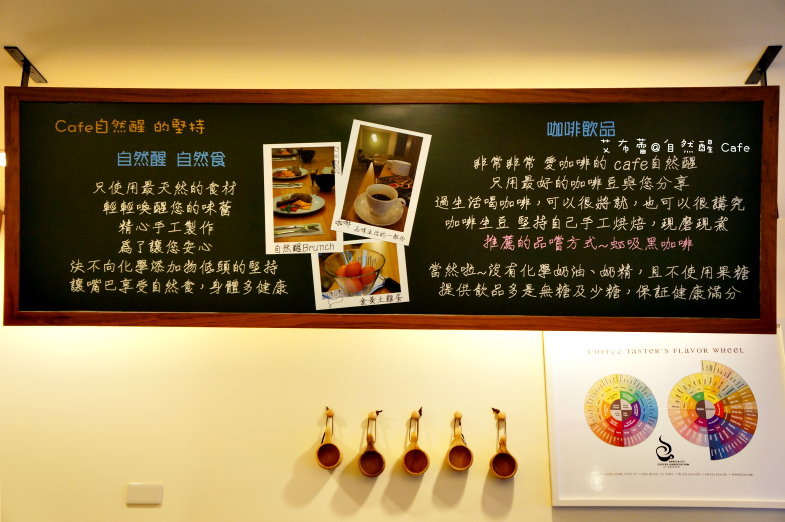 Cafe自然醒 的堅持
自然醒 自然食
只使用最天然的食材
輕輕喚醒您的味蕾
精心手工製作
為了讓您安心
決不向化學添加物低頭的堅持
讓嘴巴享受自然食，身體多健康
自然醒Brunch
咖啡 品味生活的一部份
金黃土雞蛋
咖啡飲品
艾布蕾@自然醒 Cafe
非常非常 愛咖啡的 cafe自然醒
只用最好的咖啡豆與您分享
過生活喝咖啡，可以很將就，也可以很講究
咖啡生豆 堅持自己手工烘焙，現磨現煮
推薦的品嚐方式~啜吸黑咖啡
當然啦~沒有化學奶油、奶精，且不使用果糖
提供飲品多是無糖及少糖，保証健康滿分
COFFEE TASTER'S FLAVOR WHEEL
SPECIALTY
COFFEE ASSOCIATION